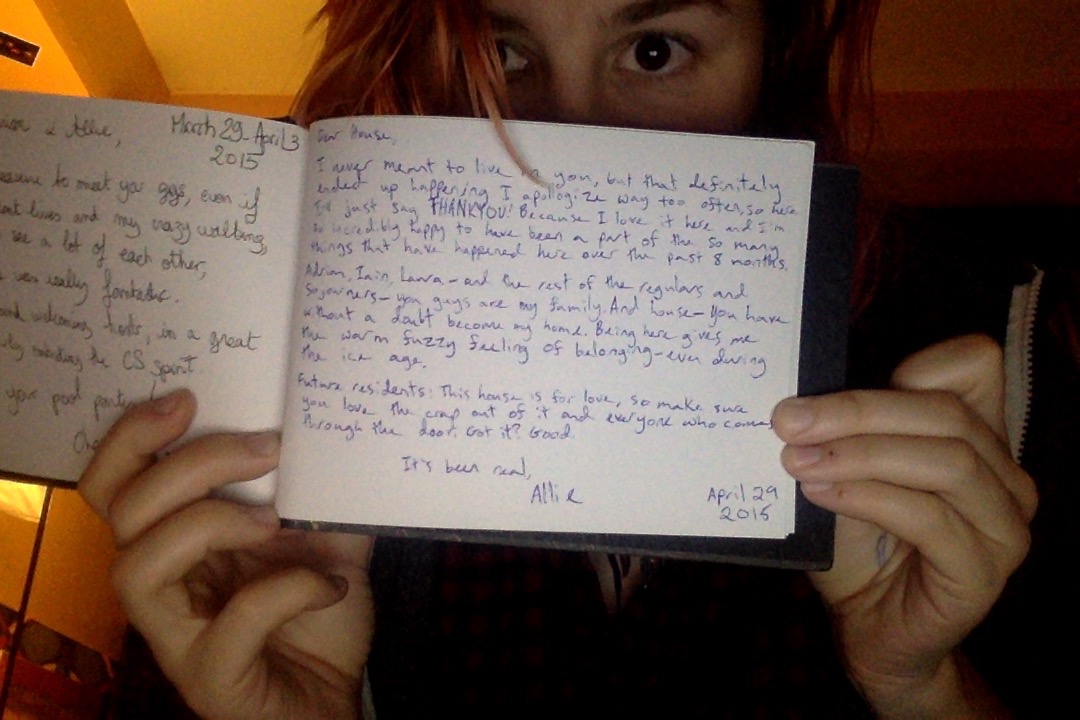 & Allie,
March 29-April 3
2015
to meet you guys, even if
lives and my crazy walking,
see a lot of each other,
was really fantastic.
and welcoming hosts, in a great
the CS spirit.
your pool party
Dear House,
I never meant to live in you, but that definitely
ended up happening. I apologize way too often, so here
I'll just say THANKYOU! Because I love it here and I'm
so incredibly happy to have been a part of the so many
things that have happened here over the past 8 months.
Adrian, Iain, Lanra - and the rest of the regulars and
sojourners - you guys are my family. And house - you have
without a doubt become my home. Being here gives me
the warm fuzzy feeling of belonging - even during
the ice age.
Future residents: This house is for love, so make sure
you love the crap out of it and everyone who comes
through the door. Got it? Good.
It's been real,
Allie
April 29
2015